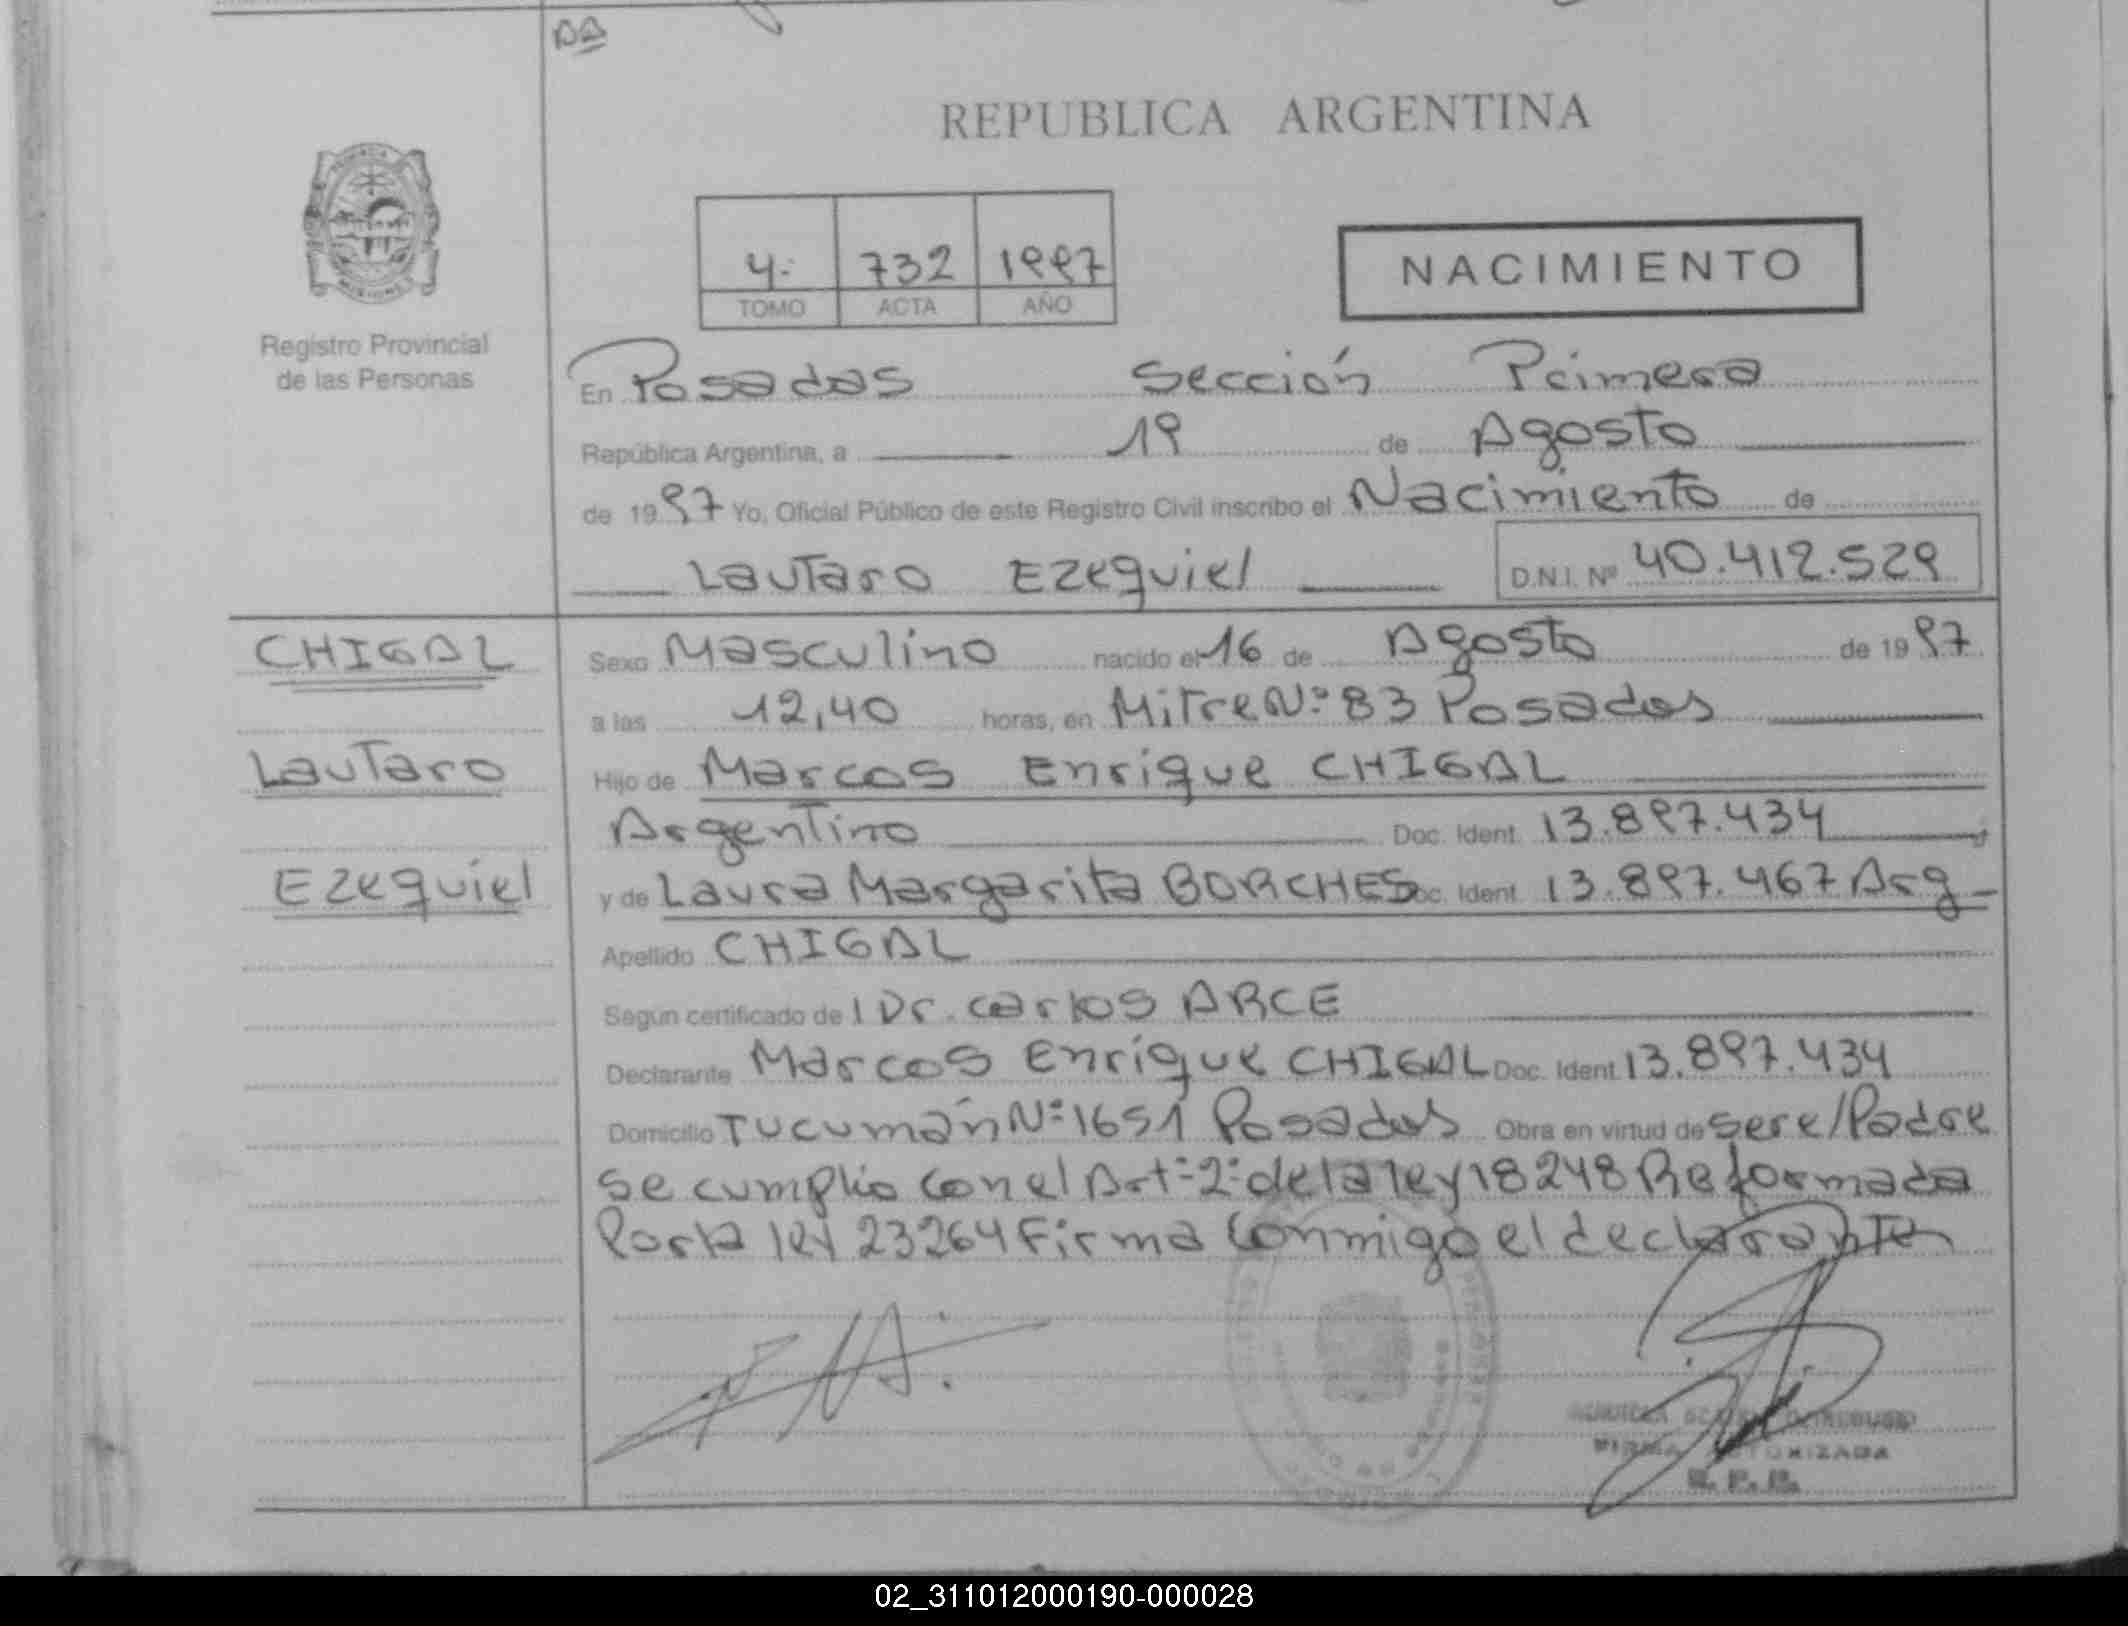 AA
REPUBLICA ARGENTINA
Registro Provincial
de las Personas
4- 732 1997
TOMO ACTA AÑO
NACIMIENTO
En Posadas Sección Primera
República Argentina, a 19 de Agosto
de 1997 Yo, Oficial Público de este Registro Civil inscribo el Nacimiento de
Lautaro Ezequiel D.N.I. Nº 40.412.529
CHIGAL
Lautaro
Ezequiel
Sexo Masculino nacido el 16 de Agosto de 1997
a las 12,40 horas, en Mitre Nº 83 Posadas
Hijo de Marcos Enrique CHIGAL
Argentino Doc. Ident. 13.897.434
y de Laura Margarita BORCHES Doc. Ident. 13.897.467 Arg
Apellido CHIGAL
Según certificado de l Dr. Carlos ARCE
Declarante Marcos Enrique CHIGAL Doc. Ident. 13.897.434
Domicilio Tucumán Nº 1651 Posadas Obra en virtud de ser e/Padre
se cumplio con el Art- 2- de la ley 18248 Reformada
Por la ley 23264 Firma conmigo el declarante
FIRMA AUTORIZADA
02_311012000190-000028